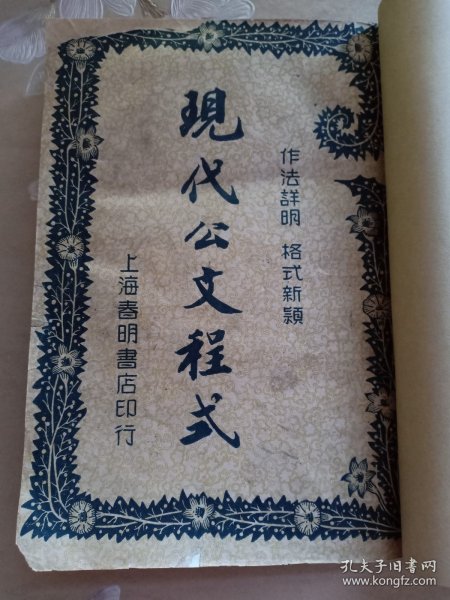 作法詳明 格式新穎
現代公文程式
上海春明書店印行
孔夫子旧书网
www.kongfz.com